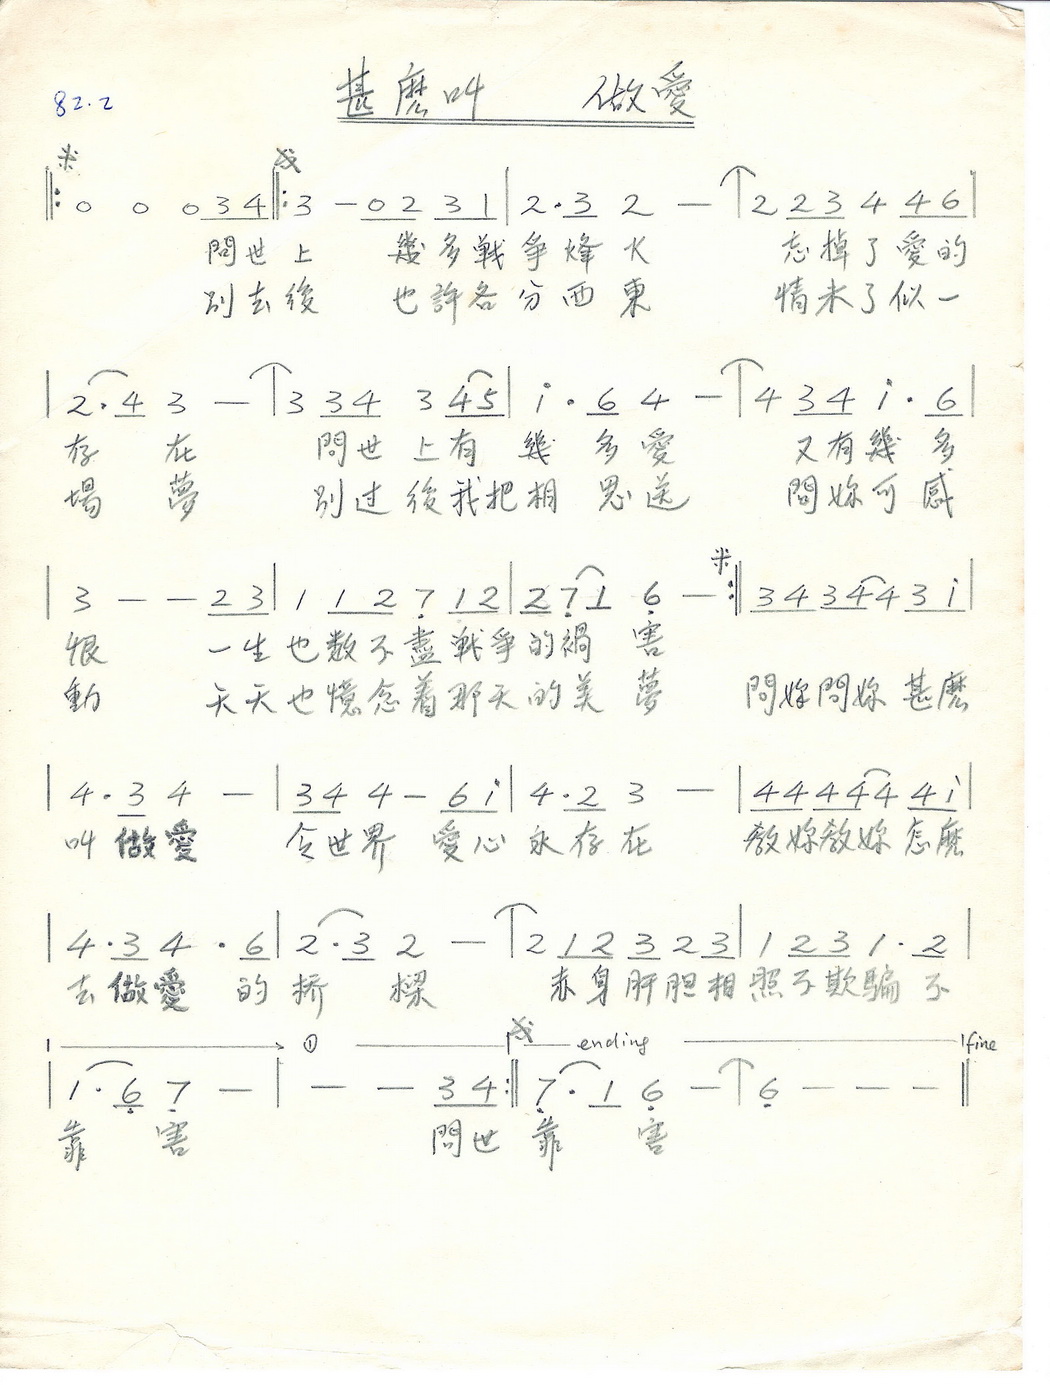 82.2
甚麽叫 做愛
0 0 0 3 4 3 - 0 2 3 1 2 · 3 2 - 2 2 3 4 4 6
問世上 幾多戰爭烽火 忘掉了愛的
別去後 也許各分西東 情未了似一
2 · 4 3 - 3 3 4 3 4 5 i · 6 4 - 4 3 4 i · 6
存在 問世上有幾多愛 又有幾多
場夢 別过後我把相思送 問妳可感
3 - - 2 3 1 1 2 7 1 2 2 7 1 6 - 3 4 3 4 4 3 i
恨 一生也数不盡戰爭的禍害
動 天天也憶念着那天的美夢 問妳問妳甚麽
4 · 3 4 - 3 4 4 - 6 i 4 · 2 3 - 4 4 4 4 4 4 i
叫做愛 令世界愛心永存在 教妳教妳怎麽
4 · 3 4 · 6 2 · 3 2 - 2 1 2 3 2 3 1 2 3 1 · 2
去做愛的 樑 赤身肝胆相照不欺騙不
① ending fine
1 · 6 7 - - - 3 4 7 · 1 6 - 6 - - -
靠害 問世靠害